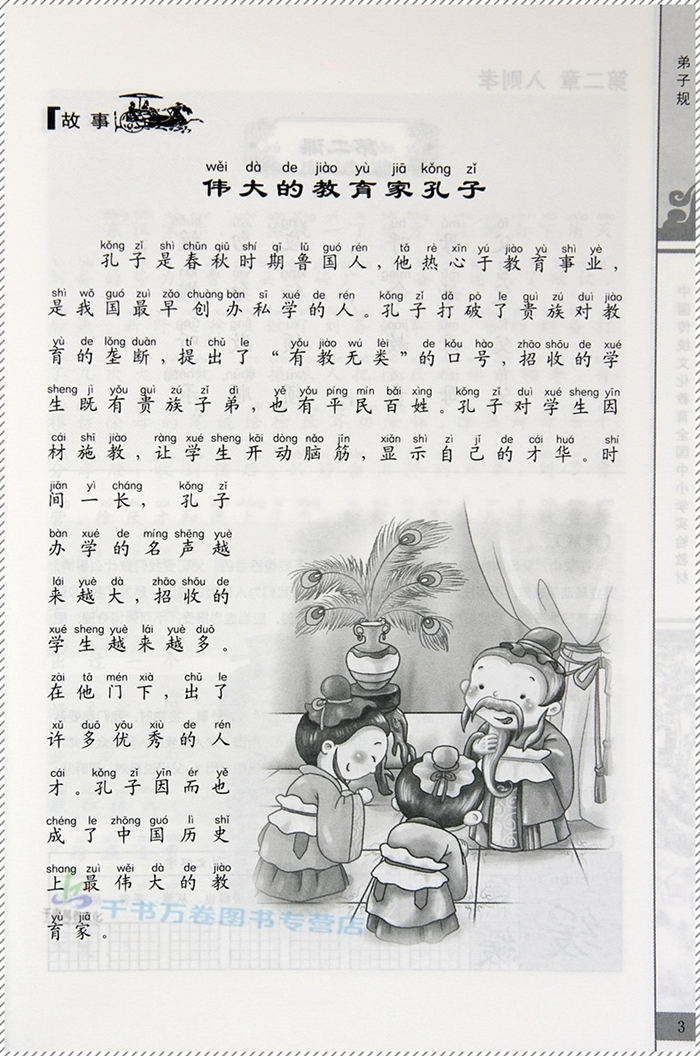 弟子规
故事
wěi dà de jiào yù jiā kǒng zǐ
伟大的教育家孔子
kǒng zǐ shì chūn qiū shí qī lǔ guó rén tā rè xīn yú jiào yù shì yè
孔子是春秋时期鲁国人,他热心于教育事业,
shì wǒ guó zuì zǎo chuàng bàn sī xué de rén kǒng zǐ dǎ pò le guì zú duì jiào
是我国最早创办私学的人。孔子打破了贵族对教
yù de lǒng duàn tí chū le yǒu jiào wú lèi de kǒu hào zhāo shōu de xué
育的垄断,提出了“有教无类”的口号,招收的学
sheng jì yǒu guì zú zǐ dì yě yǒu píng mín bǎi xìng kǒng zǐ duì xué sheng yīn
生既有贵族子弟,也有平民百姓。孔子对学生因
cái shī jiào ràng xué sheng kāi dòng nǎo jīn xiǎn shì zì jǐ de cái huá shí
材施教,让学生开动脑筋,显示自己的才华。时
jiān yì cháng kǒng zǐ
间一长,孔子
bàn xué de míng shēng yuè
办学的名声越
lái yuè dà zhāo shōu de
来越大,招收的
xué sheng yuè lái yuè duō
学生越来越多。
zài tā mén xià chū le
在他门下,出了
xǔ duō yōu xiù de rén
许多优秀的人
cái kǒng zǐ yīn ér yě
才。孔子因而也
chéng le zhōng guó lì shǐ
成了中国历史
shang zuì wěi dà de jiào
上最伟大的教
yù jiā
育家。
千书万卷图书专营店
中国传统文化教育全国中小学实验教材
3